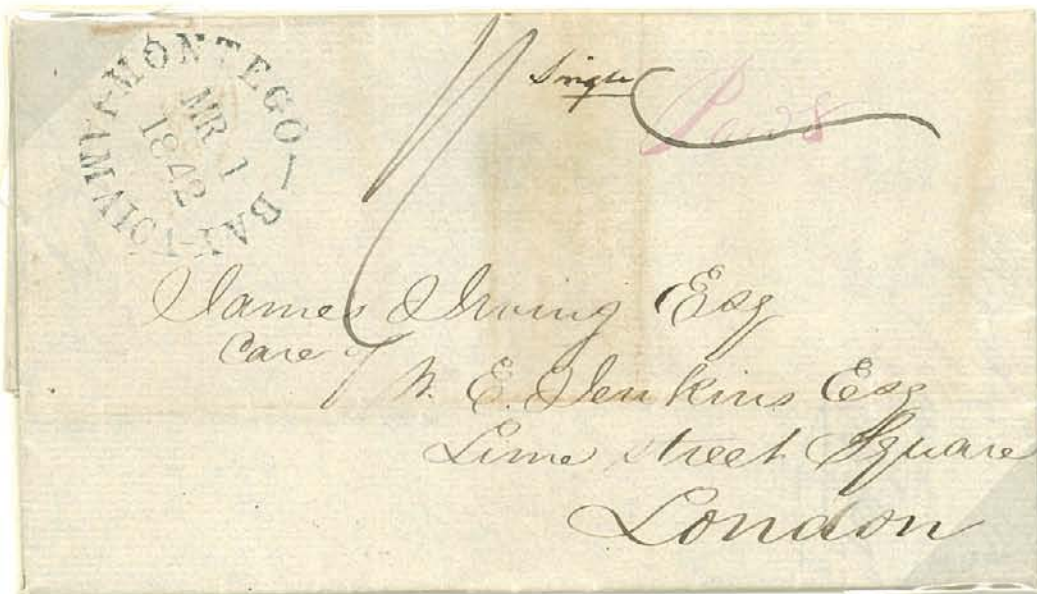 MONTEGO-BAY-JAMAICA
MR 1
1842
Single
Paid 8
James Irving Esq
Care of
W. E. Jenkins Esq
Lime street Square
London